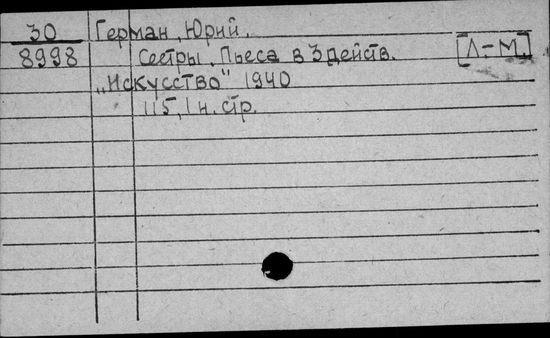 30 Герман, Юрий.
8998 Сестры. Пьеса в 3 действ. [Л.-М.]
„Искусство" 1940
115, 1 н. стр.